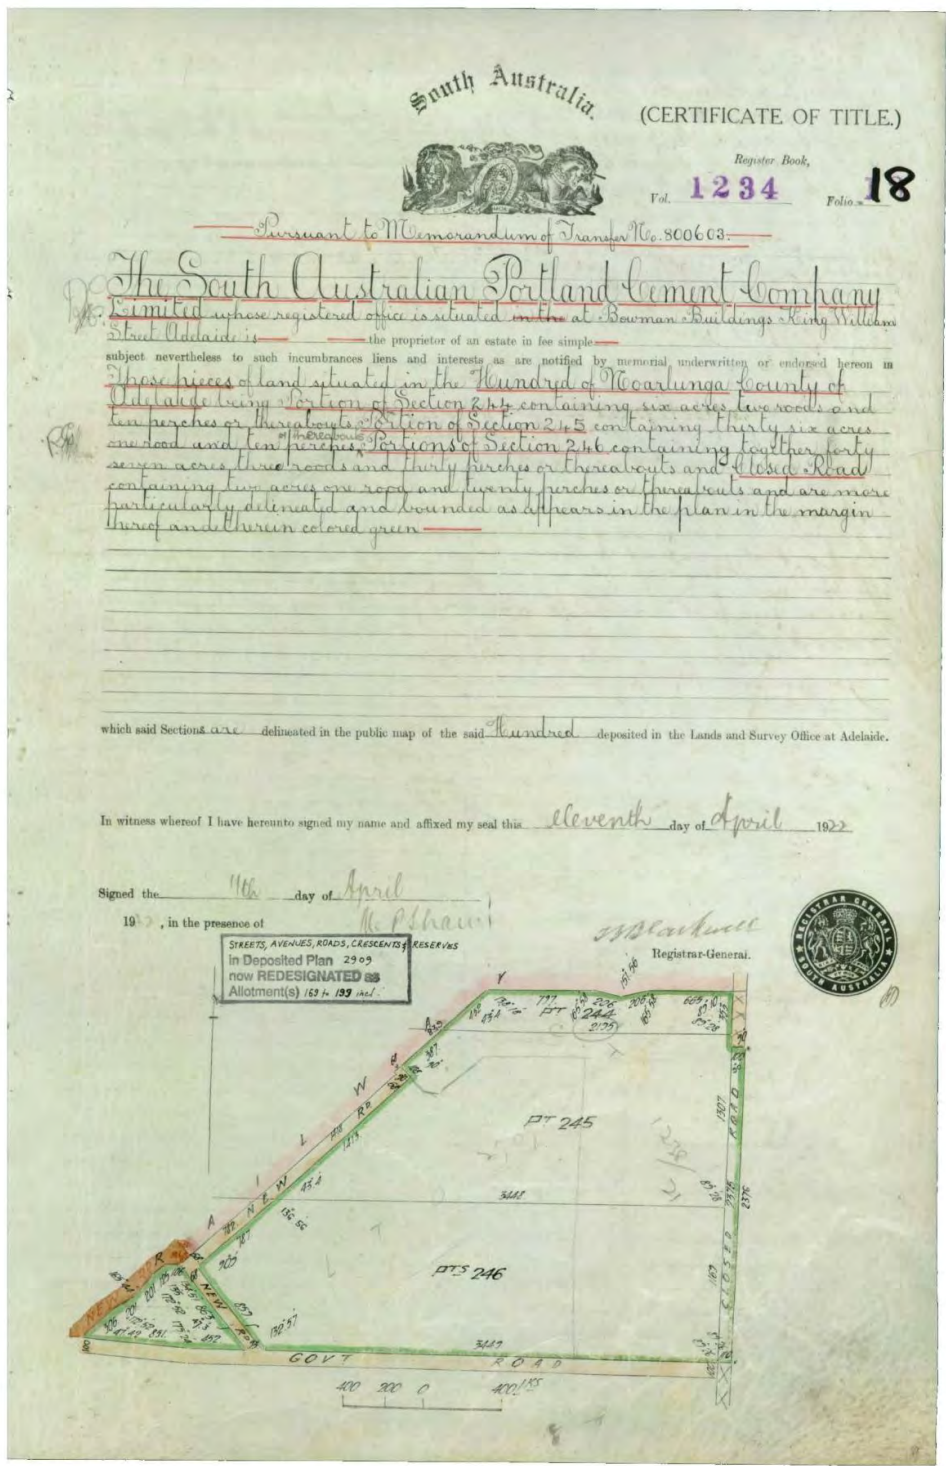 South Australia.
(CERTIFICATE OF TITLE.)
Register Book,
Vol. 1234 Folio 18
Pursuant to Memorandum of Transfer No. 800603.
The South Australian Portland Cement Company
Limited whose registered office is situated in the at Bowman Buildings King William
Street Adelaide is the proprietor of an estate in fee simple
subject nevertheless to such incumbrances liens and interests as are notified by memorial underwritten or endorsed hereon in
Those pieces of land situated in the Hundred of Noarlunga County of
Adelaide being Portion of Section 244 containing six acres two roods and
ten perches or thereabouts Portion of Section 245 containing thirty six acres
one rood and ten perches or thereabouts Portions of Section 246 containing together forty
seven acres three roods and thirty perches or thereabouts and Closed Road
containing two acres one rood and twenty perches or thereabouts and are more
particularly delineated and bounded as appears in the plan in the margin
thereof and therein colored green
which said Sections are delineated in the public map of the said Hundred deposited in the Lands and Survey Office at Adelaide.
In witness whereof I have hereunto signed my name and affixed my seal this eleventh day of April 1922
Signed the 11th day of April
19 , in the presence of
Registrar-General.
REGISTRAR GENERAL
SOUTH AUSTRALIA
STREETS, AVENUES, ROADS, CRESCENTS & RESERVES
in Deposited Plan 2909
now REDESIGNATED as
Allotment(s) 169 to 199 incl.
RAILWAY
797 206 206 665
PT 244
2195
PT 245
1307
ROAD
NEW RD
1413
3448
2376
2376
PTS 246
1169
CLOSED
NEW RD
NEW
857
132°57
3449
GOVT ROAD
400 200 0 400 LKS